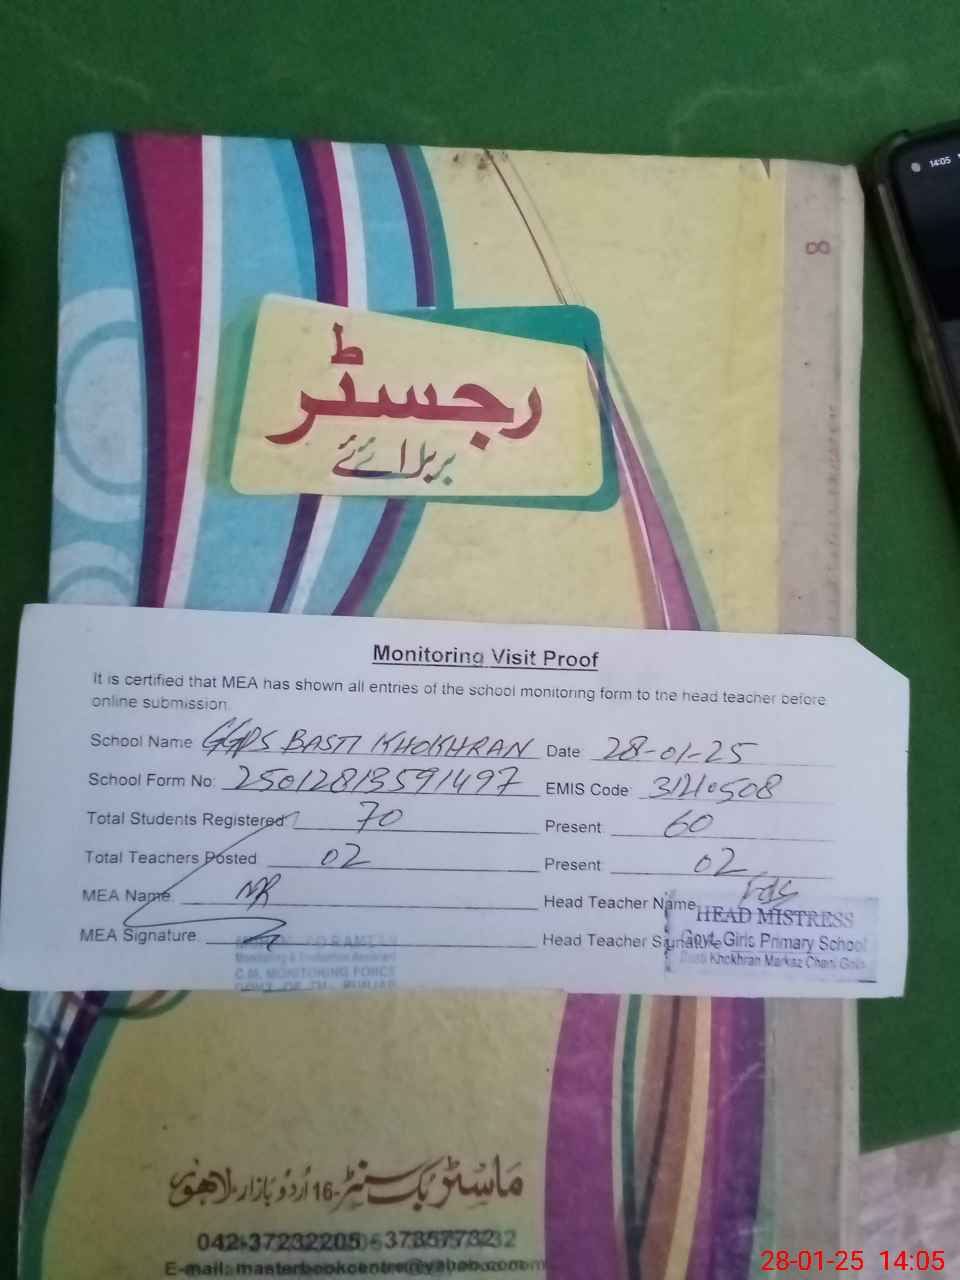 14:05
8
رجسٹر
برائے
Monitoring Visit Proof
It is certified that MEA has shown all entries of the school monitoring form to the head teacher before
online submission.
School Name GGPS BASTI KHOKHRAN Date: 28-01-25
School Form No: 25012813591497 EMIS Code:
Total Students Registered 70 Present: 60
Total Teachers Posted 02 Present: 02
MEA Name: MR Head Teacher Name
HEAD MISTRESS
MEA Signature: Head Teacher Signature
Govt. Girls Primary School
Basti Khokhran Markaz Chani Goth
Monitoring & Evaluation Assistant
C.M. MONITORING FORCE
GOVT. OF THE PUNJAB
ماسٹر بک سنٹر-16 اُردو بازار، لاہور
042-37232205 37357732
E-mail: masterbookcentre@yahoo.com
28-01-25 14:05